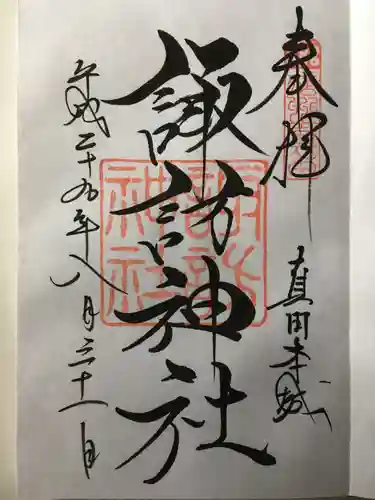 奉拝
真田本城
諏訪神社
諏訪神社
平成二十九年八月三十一日